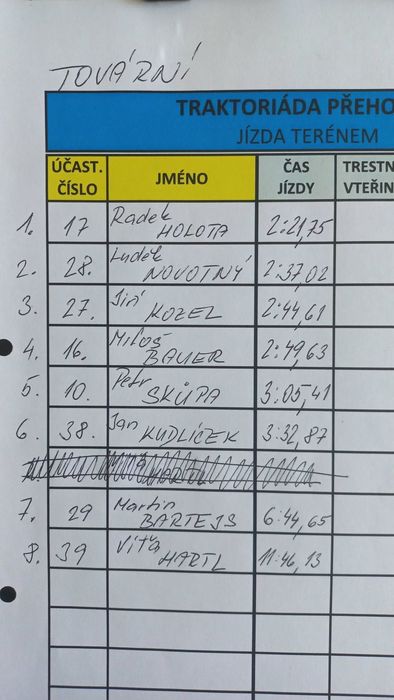 TOVÁRNÍ
TRAKTORIÁDA PŘEHO
JÍZDA TERÉNEM
ÚČAST. ČÍSLO JMÉNO ČAS JÍZDY TRESTN VTEŘIN
1. 17 Radek HOLOTA 2:21,75
2. 28. Luděk NOVOTNÝ 2:37,02
3. 27. Jiří KOZEL 2:44,61
4. 16. Miloš BAUER 2:49,63
5. 10. Petr SKŮPA 3:05,41
6. 38. Jan KUDLÍČEK 3:32,87
7. 29 Martin BARTEJS 6:44,65
8. 39 Víťa HARTL 11:46,13